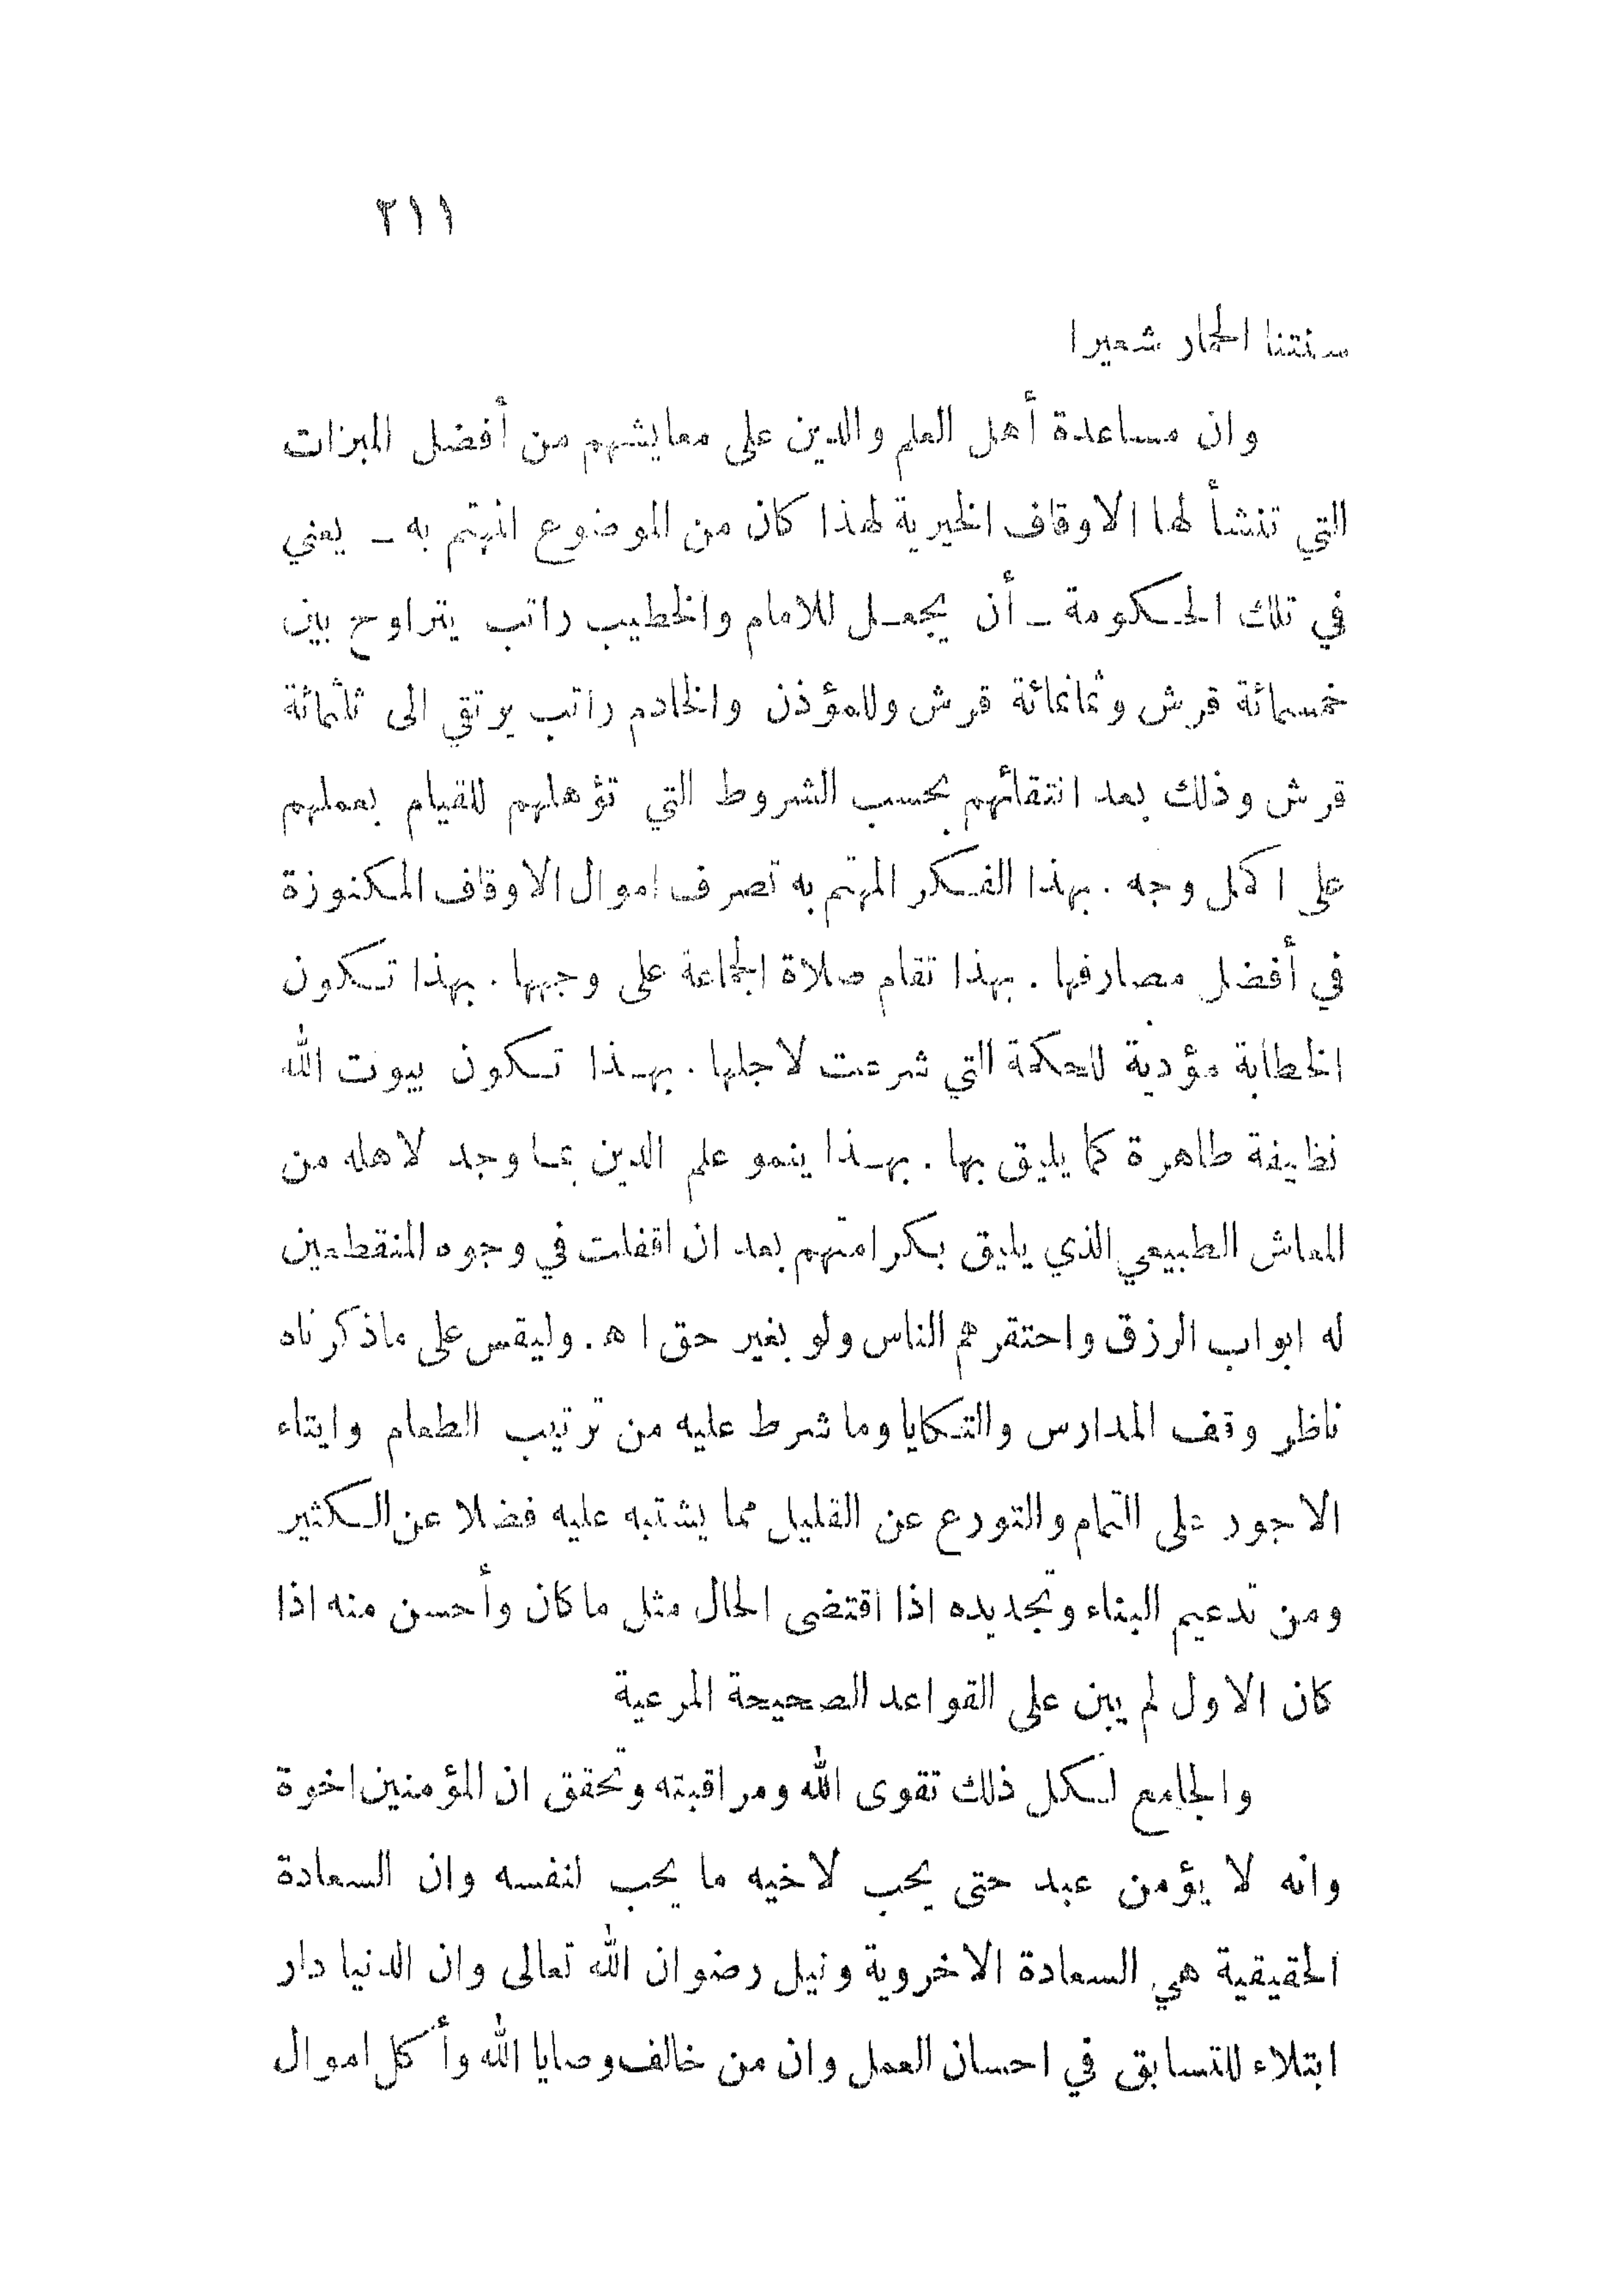 ٢١١
سنتنا الحمار شعيرا
وان مساعدة أهل العلم والدين على معايشهم من أفضل المبرات
التي تنشأ لها الاوقاف الخيرية لهذا كان من الموضوع المهتم به ــ يعني
في تلك الحكومة ــ أن يجعل للامام والخطيب راتب يتراوح بين
خمسمائة قرش وثمانمائة قرش وللمؤذن والخادم راتب يرتقي الى ثلثمائة
قرش وذلك بعد انتقائهم بحسب الشروط التي تؤهلهم للقيام بعملهم
على اكمل وجه . بهذا الفكر المهتم به تصرف اموال الاوقاف المكنوزة
في أفضل مصارفها . بهذا تقام صلاة الجماعة على وجهها . بهذا تكون
الخطابة مؤدية للحكمة التي شرعت لاجلها . بهذا تكون بيوت الله
نظيفة طاهرة كما يليق بها . بهذا ينمو علم الدين بما وجد لاهله من
المعاش الطبيعي الذي يليق بكرامتهم بعد ان اقفلت في وجوه المنقطعين
له ابواب الرزق واحتقرهم الناس ولو بغير حق اه . وليقس على ماذكرناه
ناظر وقف المدارس والتكايا وما شرط عليه من ترتيب الطعام وايتاء
الاجور على التمام والتورع عن القليل مما يشتبه عليه فضلا عن الكثير
ومن تدعيم البناء وتجديده اذا اقتضى الحال مثل ما كان وأحسن منه اذا
كان الاول لم يبن على القواعد الصحيحة المرعية
والجامع لكل ذلك تقوى الله ومراقبته وتحقق ان المؤمنين اخوة
وانه لا يؤمن عبد حتى يحب لاخيه ما يحب لنفسه وان السعادة
الحقيقية هي السعادة الاخروية ونيل رضوان الله تعالى وان الدنيا دار
ابتلاء للتسابق في احسان العمل وان من خالف وصايا الله وأكل اموال